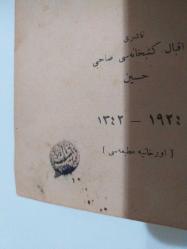 ناشری
اقبال کتبخانه‌سی صاحبی
حسین
١٩٢٤ — ١٣٤٢
[ اورخانیه مطبعه‌سی ]